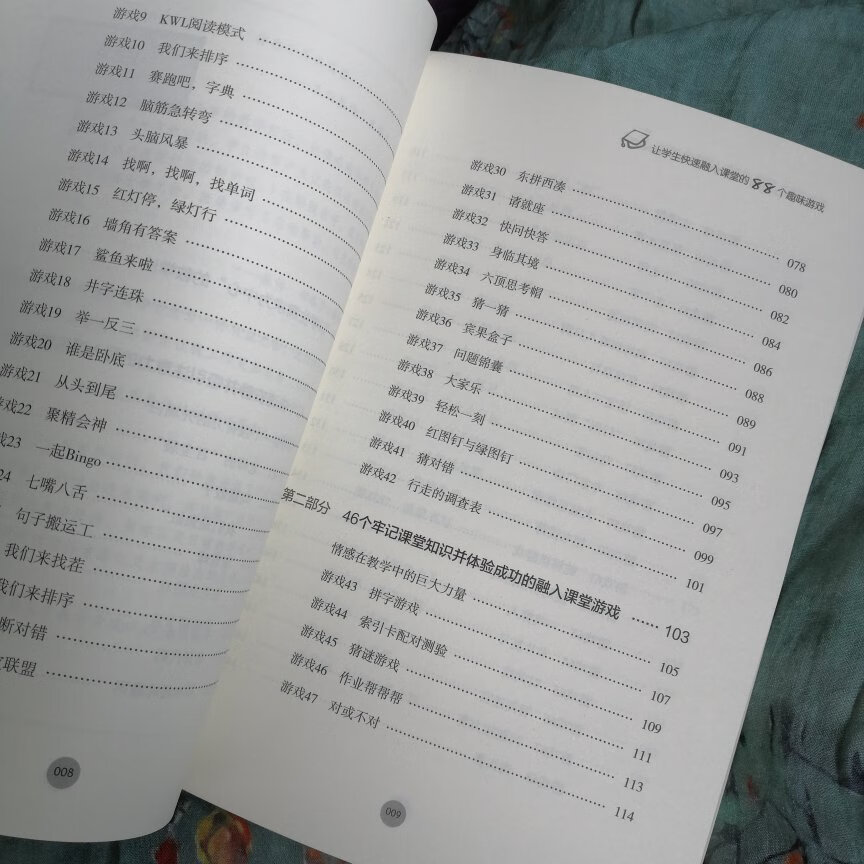 游戏9 KWL阅读模式
游戏10 我们来排序
游戏11 赛跑吧，字典
游戏12 脑筋急转弯
游戏13 头脑风暴
游戏14 找啊，找啊，找单词
游戏15 红灯停，绿灯行
游戏16 墙角有答案
游戏17 鲨鱼来啦
游戏18 井字连珠
游戏19 举一反三
游戏20 谁是卧底
游戏21 从头到尾
戏22 聚精会神
戏23 一起Bingo
24 七嘴八舌
句子搬运工
我们来找茬
我们来排序
断对错
联盟
008
让学生快速融入课堂的88个趣味游戏
游戏30 东拼西凑 078
游戏31 请就座 080
游戏32 快问快答 082
游戏33 身临其境 084
游戏34 六顶思考帽 086
游戏35 猜一猜 088
游戏36 宾果盒子 089
游戏37 问题锦囊 091
游戏38 大家乐 093
游戏39 轻松一刻 095
游戏40 红图钉与绿图钉 097
游戏41 猜对错 099
游戏42 行走的调查表 101
第二部分 46个牢记课堂知识并体验成功的融入课堂游戏 103
情感在教学中的巨大力量 105
游戏43 拼字游戏 107
游戏44 索引卡配对测验 109
游戏45 猜谜游戏 111
游戏46 作业帮帮帮 113
游戏47 对或不对 114
009